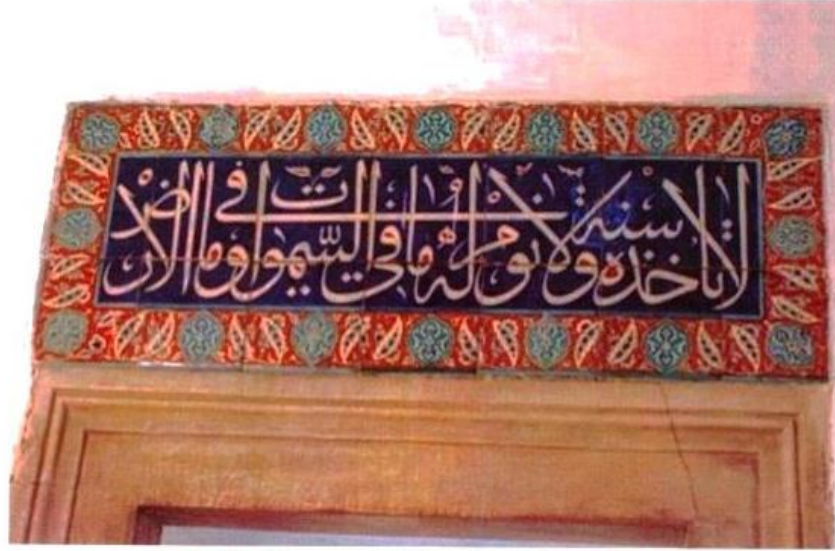 لا تأخذه سنة ولا نوم له ما في السموات وما في الارض